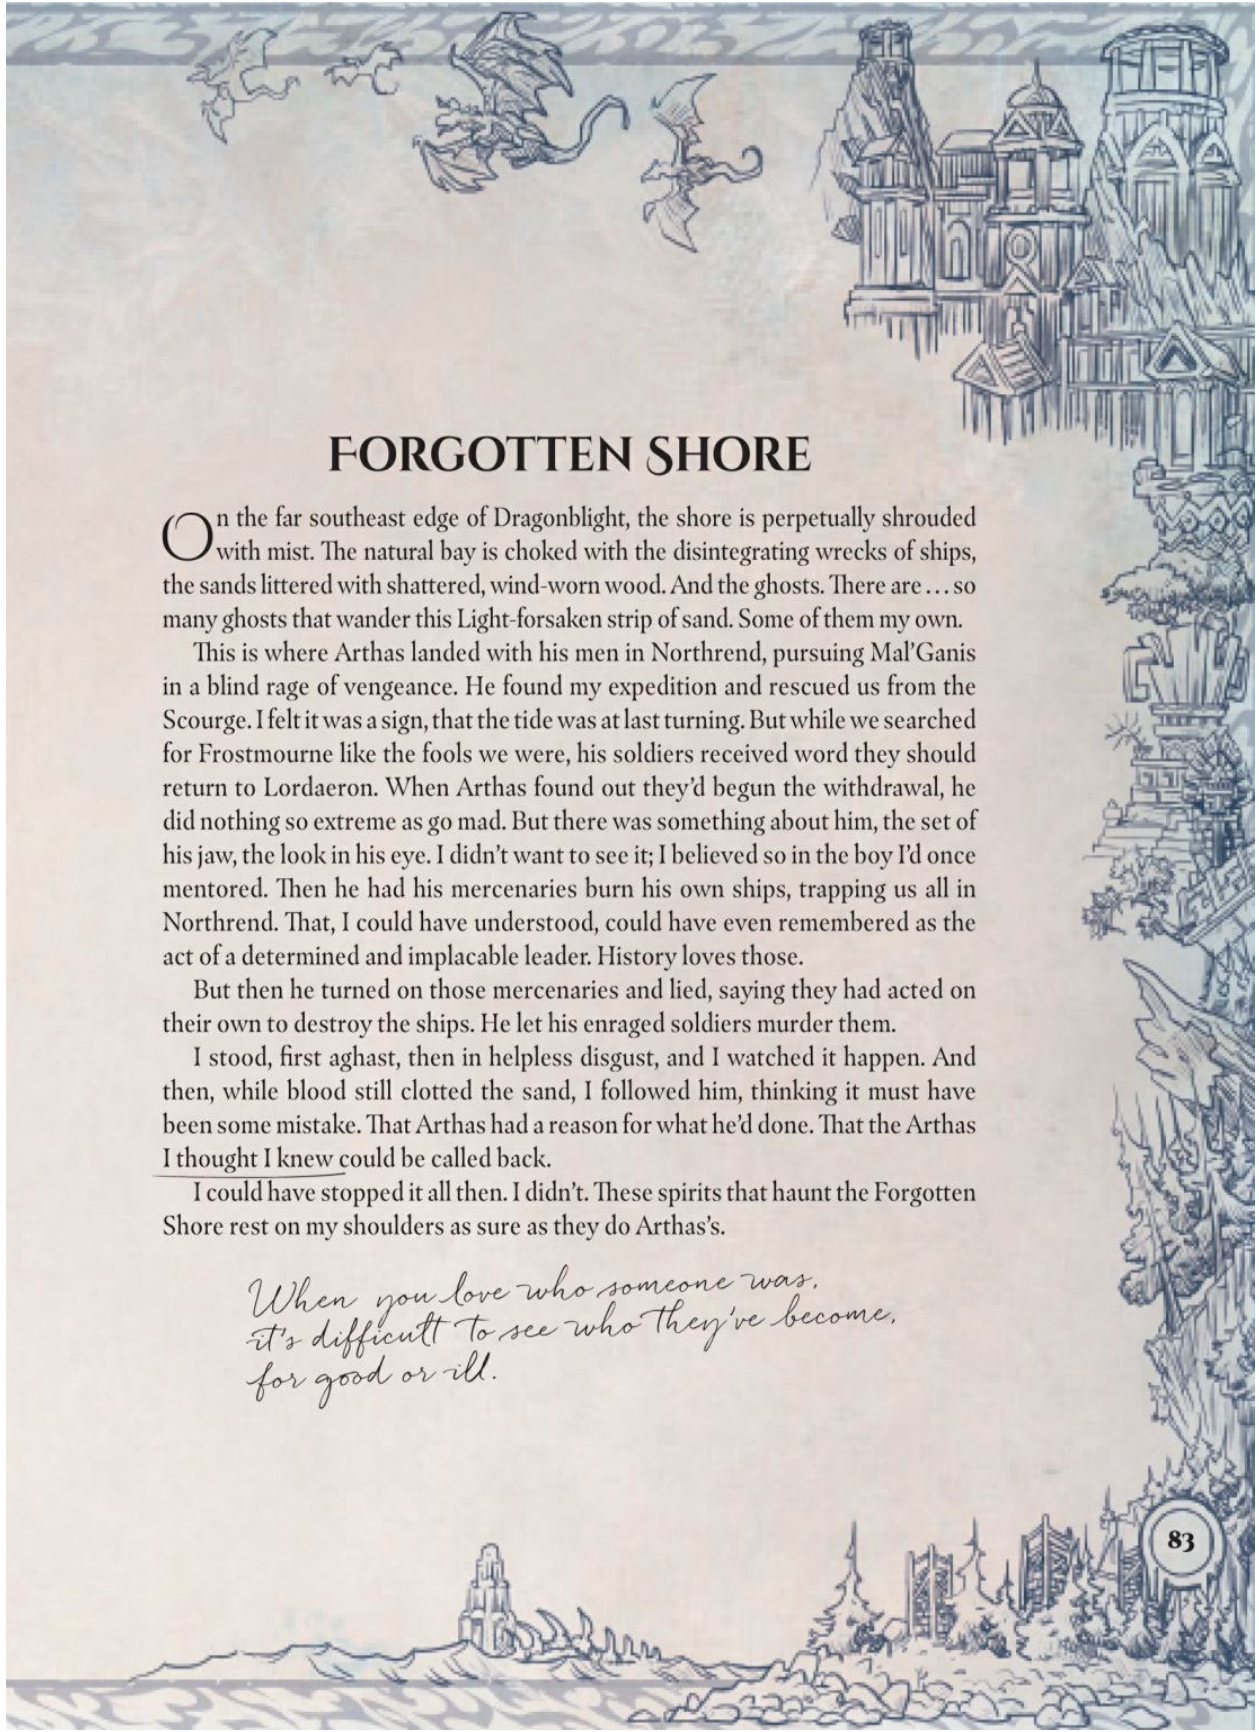 FORGOTTEN SHORE
On the far southeast edge of Dragonblight, the shore is perpetually shrouded
with mist. The natural bay is choked with the disintegrating wrecks of ships,
the sands littered with shattered, wind-worn wood. And the ghosts. There are . . . so
many ghosts that wander this Light-forsaken strip of sand. Some of them my own.
This is where Arthas landed with his men in Northrend, pursuing Mal’Ganis
in a blind rage of vengeance. He found my expedition and rescued us from the
Scourge. I felt it was a sign, that the tide was at last turning. But while we searched
for Frostmourne like the fools we were, his soldiers received word they should
return to Lordaeron. When Arthas found out they’d begun the withdrawal, he
did nothing so extreme as go mad. But there was something about him, the set of
his jaw, the look in his eye. I didn’t want to see it; I believed so in the boy I’d once
mentored. Then he had his mercenaries burn his own ships, trapping us all in
Northrend. That, I could have understood, could have even remembered as the
act of a determined and implacable leader. History loves those.
But then he turned on those mercenaries and lied, saying they had acted on
their own to destroy the ships. He let his enraged soldiers murder them.
I stood, first aghast, then in helpless disgust, and I watched it happen. And
then, while blood still clotted the sand, I followed him, thinking it must have
been some mistake. That Arthas had a reason for what he’d done. That the Arthas
I thought I knew could be called back.
I could have stopped it all then. I didn’t. These spirits that haunt the Forgotten
Shore rest on my shoulders as sure as they do Arthas’s.
When you love who someone was,
it’s difficult to see who they’ve become,
for good or ill.
83